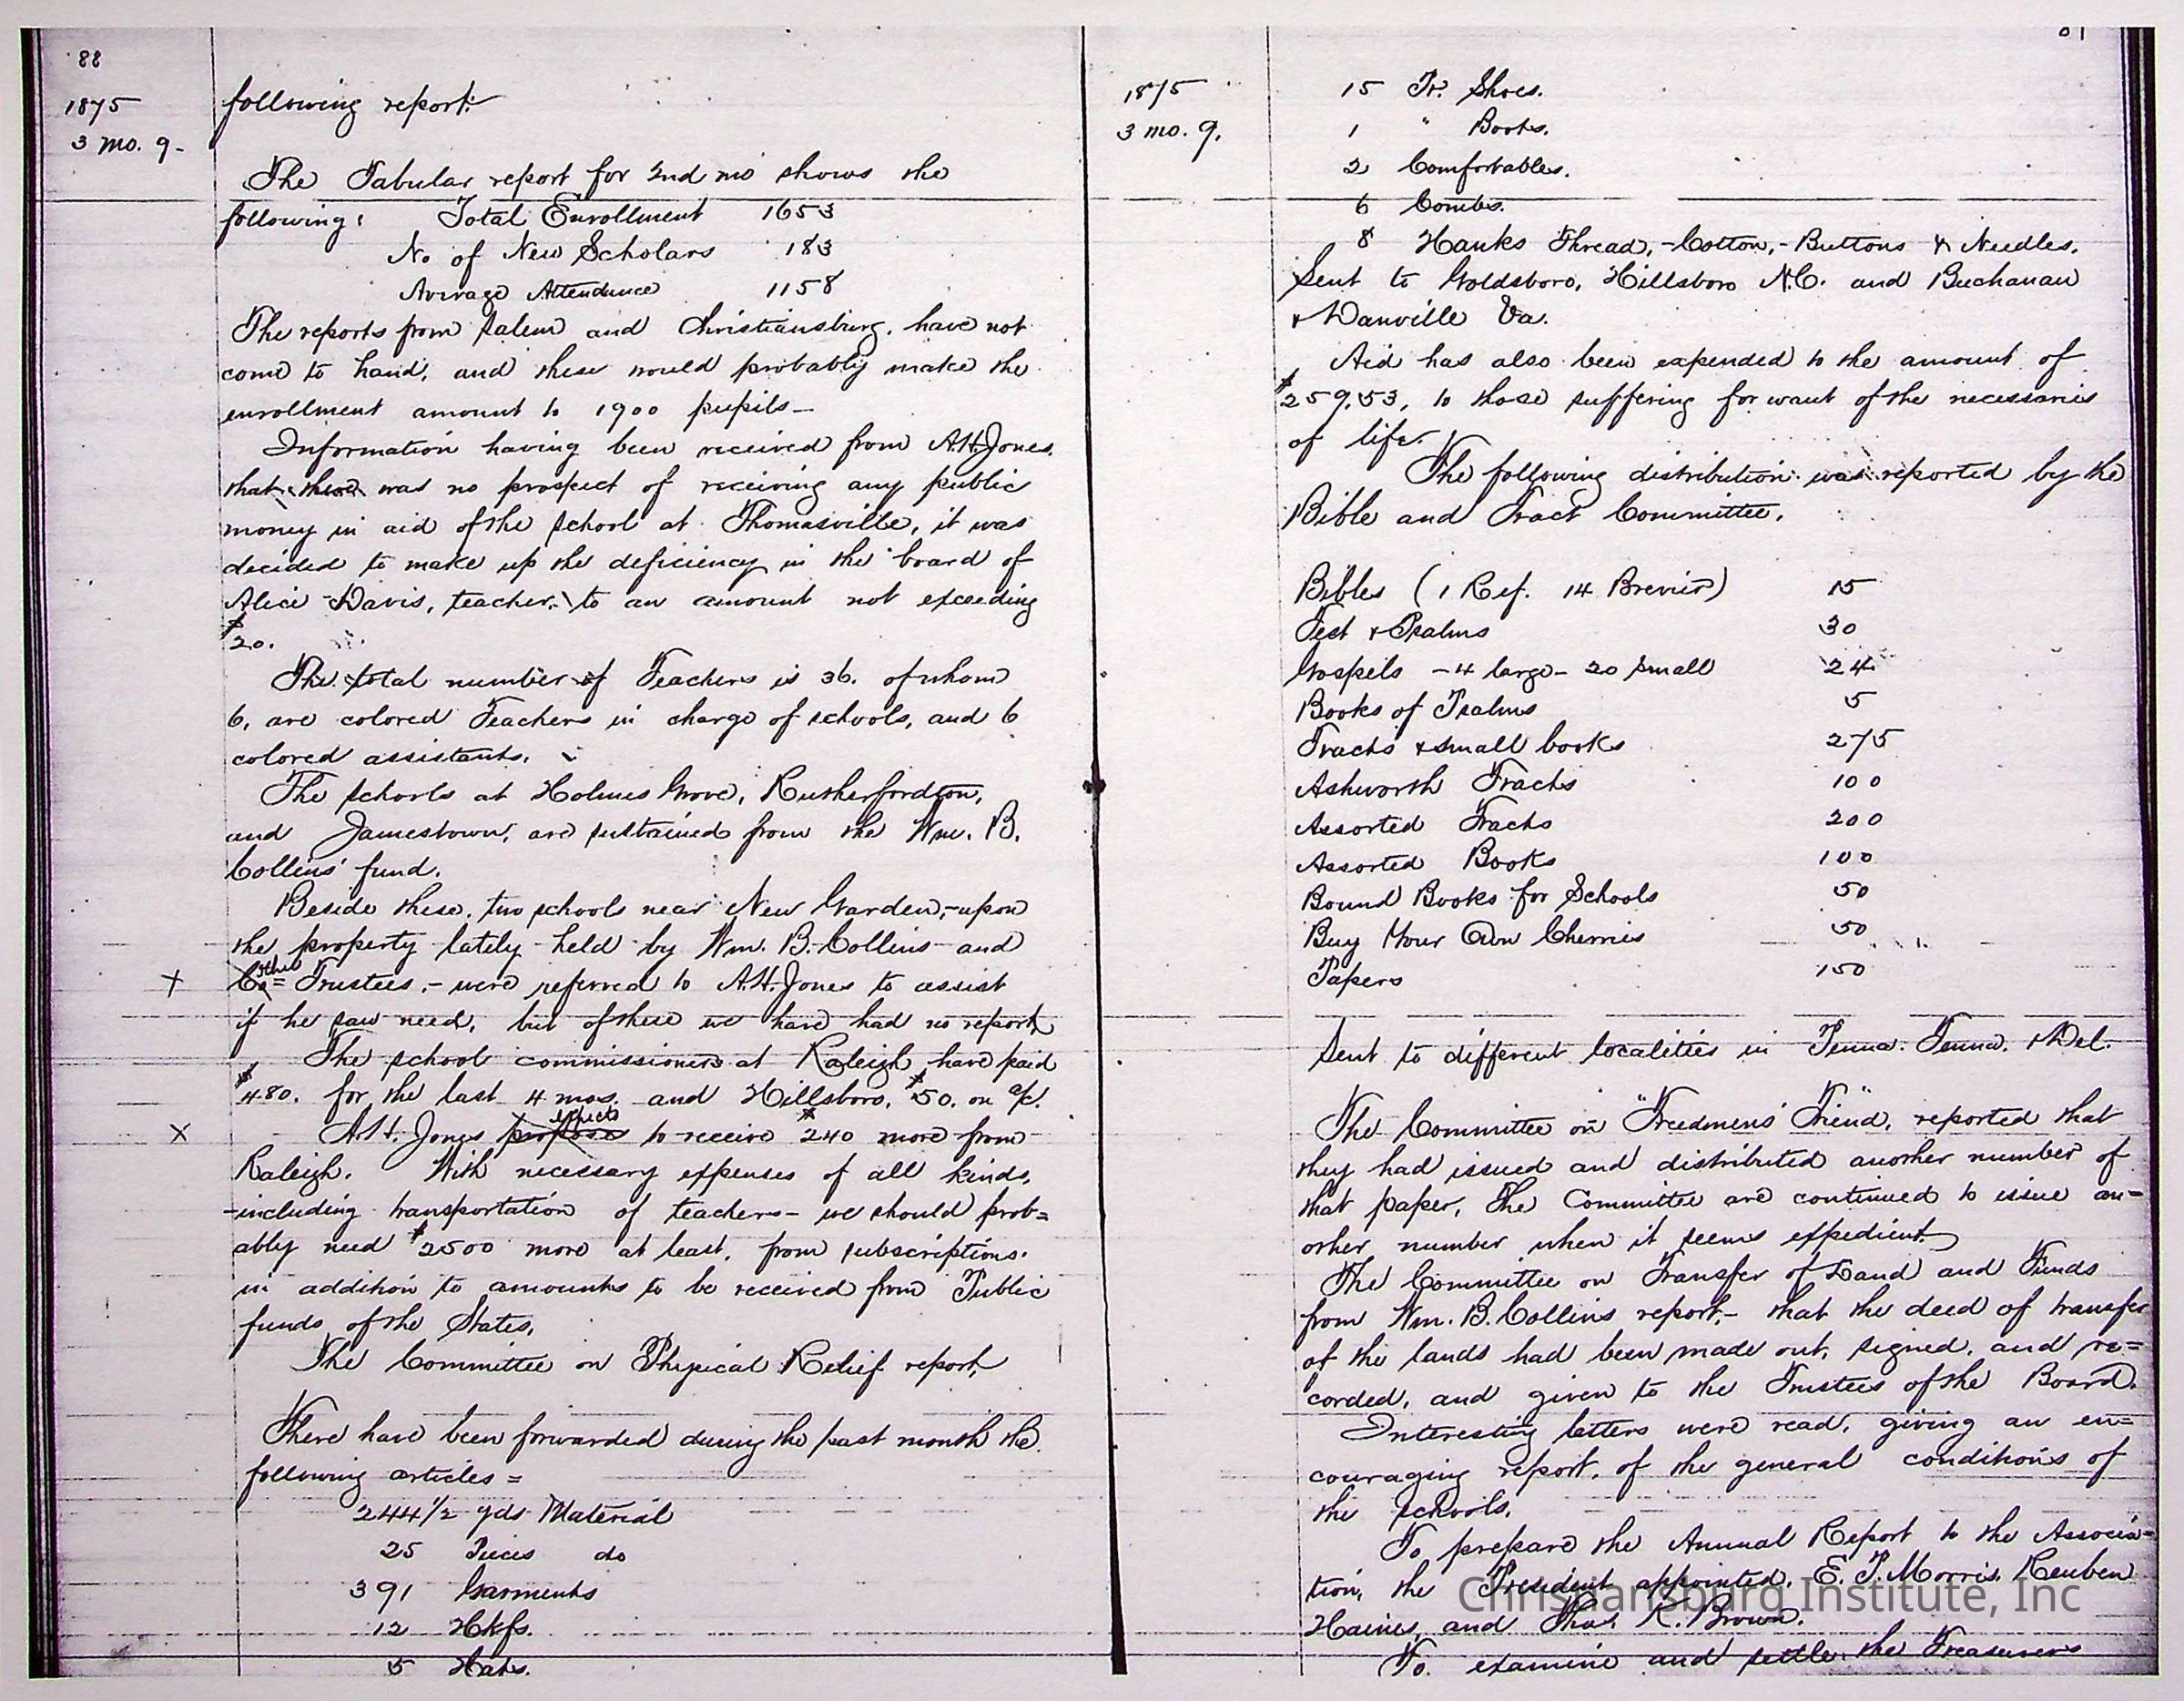 88
1875
3 mo. 9.
following report:
The Tabular report for 2nd mo shows the
following: Total Enrollment 1653
No. of New Scholars 183
Average Attendance 1158
The reports from Salem and Christiansburg, have not
come to hand, and these would probably make the
enrollment amount to 1900 pupils—
Information having been received from A.H. Jones,
that there was no prospect of receiving any public
money in aid of the school at Thomasville, it was
decided to make up the deficiency in the board of
Alice Davis, teacher, to an amount not exceeding
$20.
The total number of Teachers is 36. of whom
6, are colored Teachers in charge of schools, and 6
colored assistants.
The schools at Holmes Grove, Rutherfordton,
and Jamestown, are sustained from the Wm. B.
Collins' fund.
Beside these, two schools near New Garden,-upon
the property lately held by Wm. B. Collins and
X Co= other Trustees,- were referred to A.H. Jones to assist
if he saw need, but of these we have had no report,
The school commissioners at Raleigh have paid
$480. for the last 4 mos. and Hillsboro, $50. on a/c.
X A.H. Jones proposes expects to receive $240 more from
Raleigh. With necessary expenses of all kinds,
-including transportation of teachers- we should prob=
ably need $2500 more at least, from subscriptions.
in addition to amounts to be received from Public
funds of the States.
The Committee on Physical Relief report,
There have been forwarded during the past month the
following articles =
244 1/2 yds Material
25 Pieces do
391 Garments
12 Hkfs.
5 Hats.
1875
3 mo. 9.
15 Pr. Shoes.
1 " Boots.
2 Comfortables.
6 Combs.
8 Hanks Thread,-Cotton,-Buttons & Needles.
Sent to Goldsboro, Hillsboro N.C. and Buchanan
& Danville Va.
Aid has also been expended to the amount of
$259.53, to those suffering for want of the necessaries
of life.
The following distribution was reported by the
Bible and Tract Committee.
Bibles (1 Ref. 14 Brevier) 15
Test & Psalms 30
Gospels -4 large- 20 small 24
Books of Psalms 5
Tracts & small books 275
Ashworth Tracts 100
Assorted Tracts 200
Assorted Books 100
Bound Books for Schools 50
Buy Your Own Cherries 50
Papers 150
Sent to different localities in Penna. Tenna. & Del.
The Committee on "Freedmens' Friend", reported that
they had issued and distributed another number of
that paper, The Committee are continued to issue an=
other number when it seems expedient.
The Committee on Transfer of Land and Funds
from Wm. B. Collins report,- that the deed of transfer
of the lands had been made out, signed, and re=
corded, and given to the Trustees of the Board.
Interesting letters were read, giving an en=
couraging report, of the general conditions of
the schools.
To prepare the Annual Report to the Associa=
tion, the President appointed, E. T. Morris, Reuben
Haines, and Thos. K. Brown.
To examine and settle the Treasurers
Christiansburg Institute, Inc